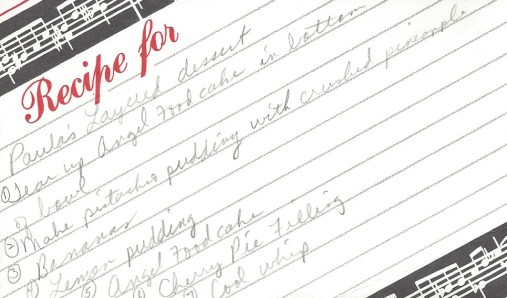 Recipe for
Paula's Layered dessert
① Tear up Angel Food cake in bottom
of bowl
② Make pistachio pudding with crushed pineapple
③ Bananas
④ Lemon pudding
⑤ Angel Food cake
⑥ Cherry Pie Filling
⑦ Cool whip